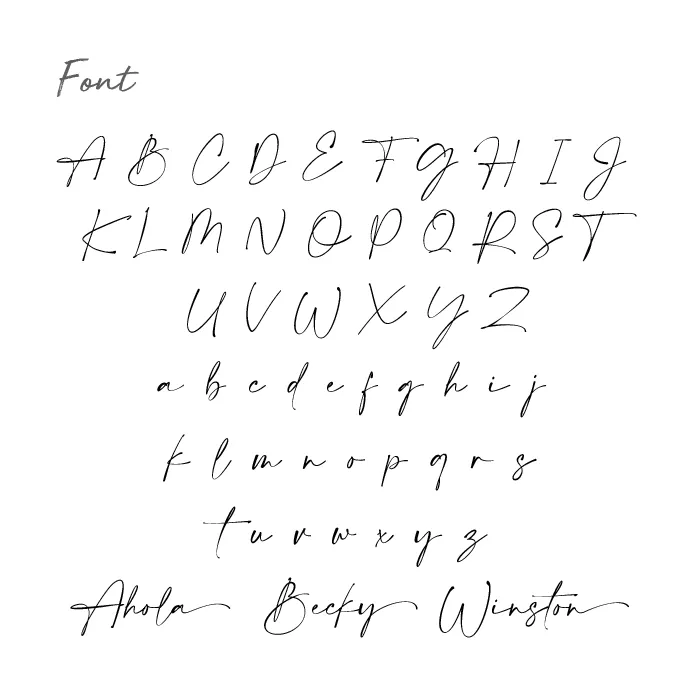 Font
A B C D E F G H I J
K L M N O P Q R S T
U V W X Y Z
a b c d e f g h i j
k l m n o p q r s
t u v w x y z
Ahola Becky Winston